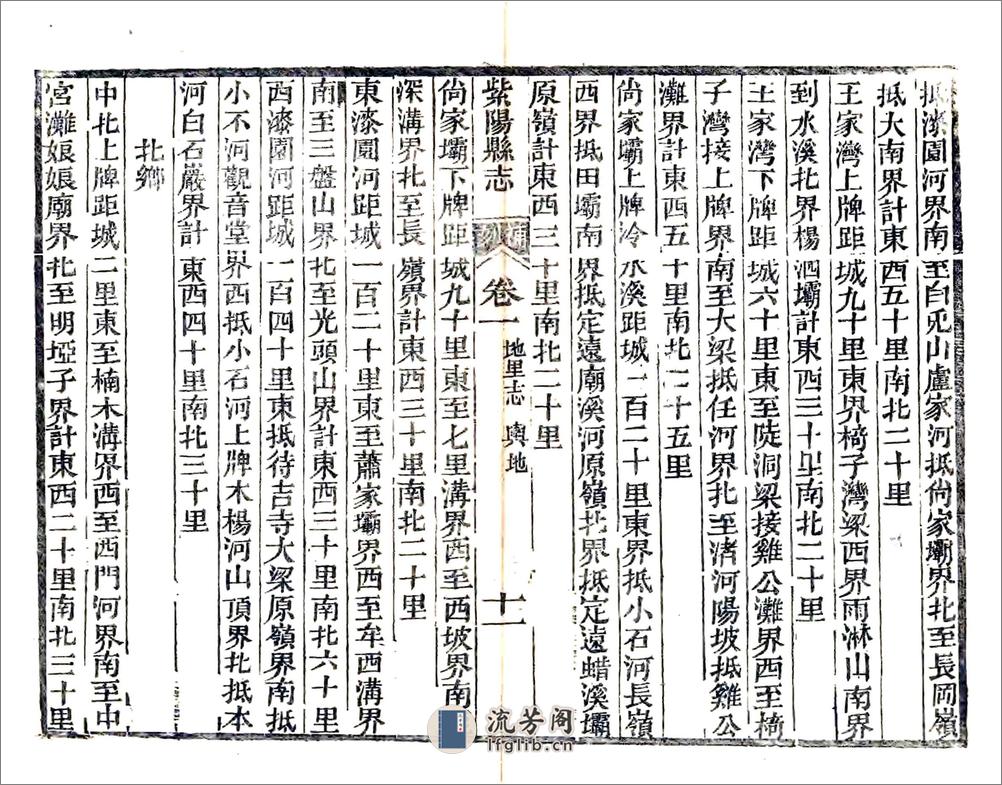 抵漆園河界南至白兎山盧家河抵尙家壩界北至長岡嶺
抵大南界計東西五十里南北二十里
王家灣上牌距城九十里東界椅子灣梁西界雨淋山南界
到水溪北界楊泗壩計東西三十里南北二十里
王家灣下牌距城六十里東至陡洞梁接雞公灘界西至椅
子灣接上牌界南至大梁抵任河界北至渚河陽坡抵雞公
灘界計東西五十里南北二十五里
尙家壩上牌冷水溪距城一百二十里東界抵小石河長嶺
西界抵田壩南界抵定遠廟溪河原嶺北界抵定遠蜡溪壩
原嶺計東西三十里南北二十里
紫陽縣志 卷一 地里志 輿地 十一
尙家壩下牌距城九十里東至七里溝界西至西坡界南
深溝界北至長嶺界計東西三十里南北二十里
東漆園河距城一百二十里東至蕭家壩界西至牟西溝界
南至三盤山界北至光頭山界計東西三十里南北六十里
西漆園河距城一百四十里東抵待吉寺大梁原嶺界南抵
小不河觀音堂界西抵小石河上牌木楊河山頂界北抵本
河白石巖界計東西四十里南北三十里
北鄉
中北上牌距城二里東至楠木溝界西至西門河界南至中
宮灘娘娘廟界北至明埡子界計東西二十里南北三十里
流芳阁
lfglib.cn